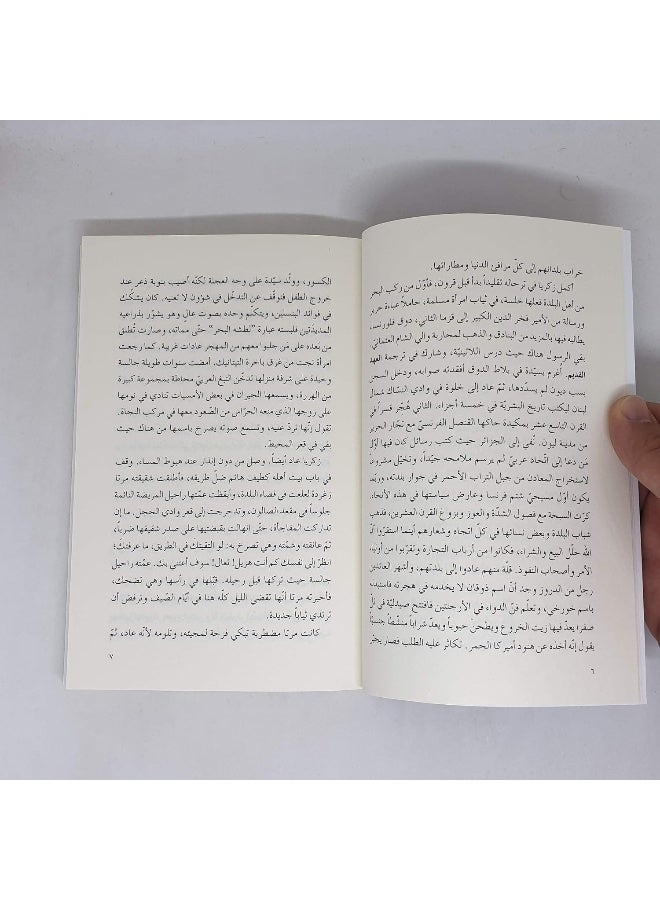 خراب بلدانهم إلى كلّ مرافئ الدنيا ومطاراتها.
أكمل زكريا في ترحاله تقليداً بدأ قبل قرون، فأوّل من ركب البحر
من أهل البلدة فعلها خلسة، في ثياب امرأة مسلمة، حاملاً عباءة حرير
ورسالة من الأمير فخر الدين الكبير إلى قزما الثاني، دوق فلورنسا،
يطالبه فيها بالمزيد من البنادق والذهب لمحاربة والي الشام العثماني.
بقي الرسول هناك حيث درس اللاتينيّة، وشارك في ترجمة العهد
القديم. أُغرم بسيّدة في بلاط الدوق أفقدته صوابه، ودخل السجن
بسبب ديون لم يسدّدها، ثمّ عاد إلى خلوة في وادي النسّاك شمال
لبنان ليكتب تاريخ البشريّة في خمسة أجزاء. الثاني هُجّر قسراً في
القرن التاسع عشر بمكيدة حاكها القنصل الفرنسيّ مع تجّار الحرير
من مدينة ليون. نُفي إلى الجزائر حيث كتب رسائل كان فيها أوّل
من دعا إلى اتّحاد عربيّ لم يرسم ملامحه جيّداً، وتخيّل مشروعاً
لاستخراج المعادن من جبل التراب الأحمر في جوار بلدته، وربّما
يكون أوّل مسيحيّ شتم فرنسا وعارض سياستها في هذه الأنحاء.
كرّت السبحة مع فصول الشدّة والعوز وبزوغ القرن العشرين، فذهب
شباب البلدة وبعض نسائها في كلّ اتجاه وشعارهم أينما استقرّوا أنّ
الله حلّل البيع والشراء، فكانوا من أرباب التجارة وتقرّبوا من أولياء
الأمر وأصحاب النفوذ. قلّة منهم عادوا إلى بلدتهم، وأشهر العائدين
رجل من الدروز وجد أنّ اسم ذوقان لا يخدمه في هجرته فاستبدله
باسم خورخي، وتعلّم فنّ الدواء في الأرجنتين فافتتح صيدليّة في تلّ
صفرا يعدّ فيها زيت الخروع ويطحن حبوباً ويعدّ شراباً منشّطاً جنسيّاً
يقول إنّه أخذه عن هنود أميركا الحمر. تكاثر عليه الطلب فصار يجبّر
٦
الكسور، وولّد سيّدة على وجه العجلة لكنّه أصيب بنوبة ذعر عند
خروج الطفل فتوقّف عن التدخّل في شؤون لا تعنيه. كان يشكّك
في فوائد البنسلين، ويتكلّم وحده بصوت عالٍ وهو يشوّر بذراعيه
المديدتين فلبسته عبارة "لطشه البحر" حتّى مماته، وصارت تُطلق
من بعده على مَن جلبوا معهم من المهجر عادات غريبة. كما رجعت
امرأة نجت من غرق باخرة التيتانيك. أمضت سنوات طويلة جالسة
وحيدة على شرفة منزلها تدخّن التبغ العربيّ محاطة بمجموعة كبيرة
من الهررة، ويسمعها الجيران في بعض الأمسيات تنادي في نومها
على زوجها الذي منعه الحرّاس من الصّعود معها في مركب النجاة.
تقول إنّها تردّ عليه، وتسمع صوته يصرخ باسمها من هناك حيث
بقي في قعر المحيط.
زكريا عاد أيضاً. وصل من دون إنذار عند هبوط المساء. وقف
في باب بيت أهله كطيف هائم ضلّ طريقه، فأطلقت شقيقته مرتا
زغردة لعلعت في فضاء البلدة، وأيقظت عمّتها راحيل المريضة النائمة
جلوساً في مقعد الصالون، وتدحرجت إلى قعر وادي الحجل. ما إن
تداركت المفاجأة، حتّى انهالت بقبضتيها على صدر شقيقها ضرباً،
ثمّ عانقته وشمّته وهي تصرخ به: لو التقيتك في الطريق، ما عرفتك؛
انظرْ إلى نفسك كم أنت هزيل! تعال! سوف أعتني بك. عمّته راحيل
جالسة حيث تركها قبل رحيله. قبّلها في رأسها وهي تضحك،
فأخبرته مرتا أنّها تقضي الليل كلّه هنا في أيّام الصّيف وترفض أن
ترتدي ثياباً جديدة.
كانت مرتا مضطربة تبكي فرحة لمجيئه، وتلومه لأنّه عاد، ثمّ
٧